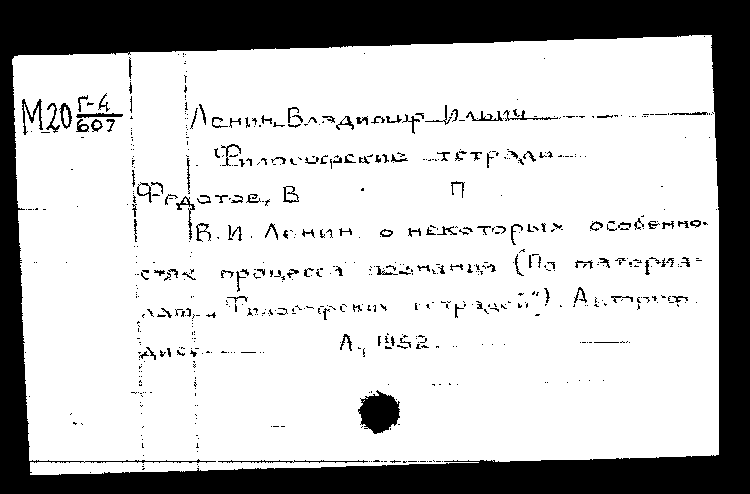 М20 Г-4/607
Ленин, Владимир Ильич
Философские тетради
Федотов, В П
В. И. Ленин о некоторых особенно-
стях процесса познания (По материа-
лам „Философских тетрадей"). Автореф.
дисс. Л., 1952.